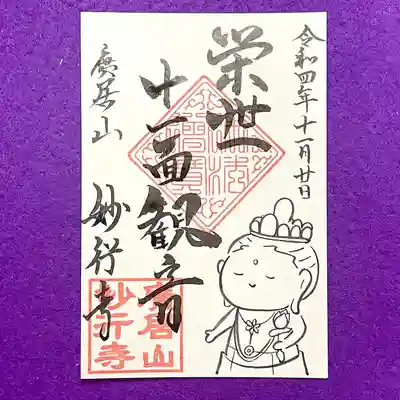 令和四年十一月廿日
栄世
十一面観音
廣居山
妙行寺
廣居山
妙行寺